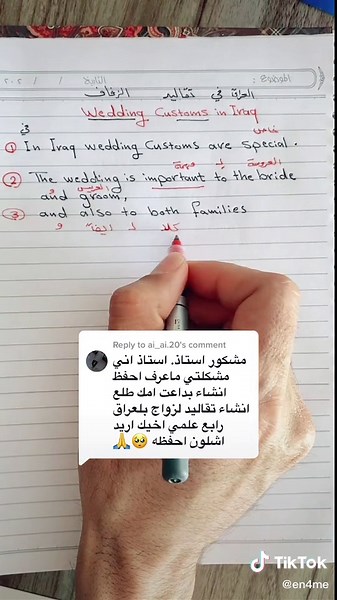 الموضوع: التاريخ / / ٢٠٢
العراق في تقاليد الزفاف
Wedding Customs in Iraq
في خاص
① In Iraq wedding Customs are special.
مهمة لـ العروسة
② The wedding is important to the bride
و العريس
and groom,
③ and also to both families
و ايضاً لـ كلا
Reply to ai_ai.20's comment
مشكور استاذ. استاذ اني
مشكلتي ماعرف احفظ
انشاء بداعت امك طلع
انشاء تقاليد لزواج بلعراق
رابع علمي اخيك اريد
اشلون احفظه 🥺🙏
TikTok
@en4me